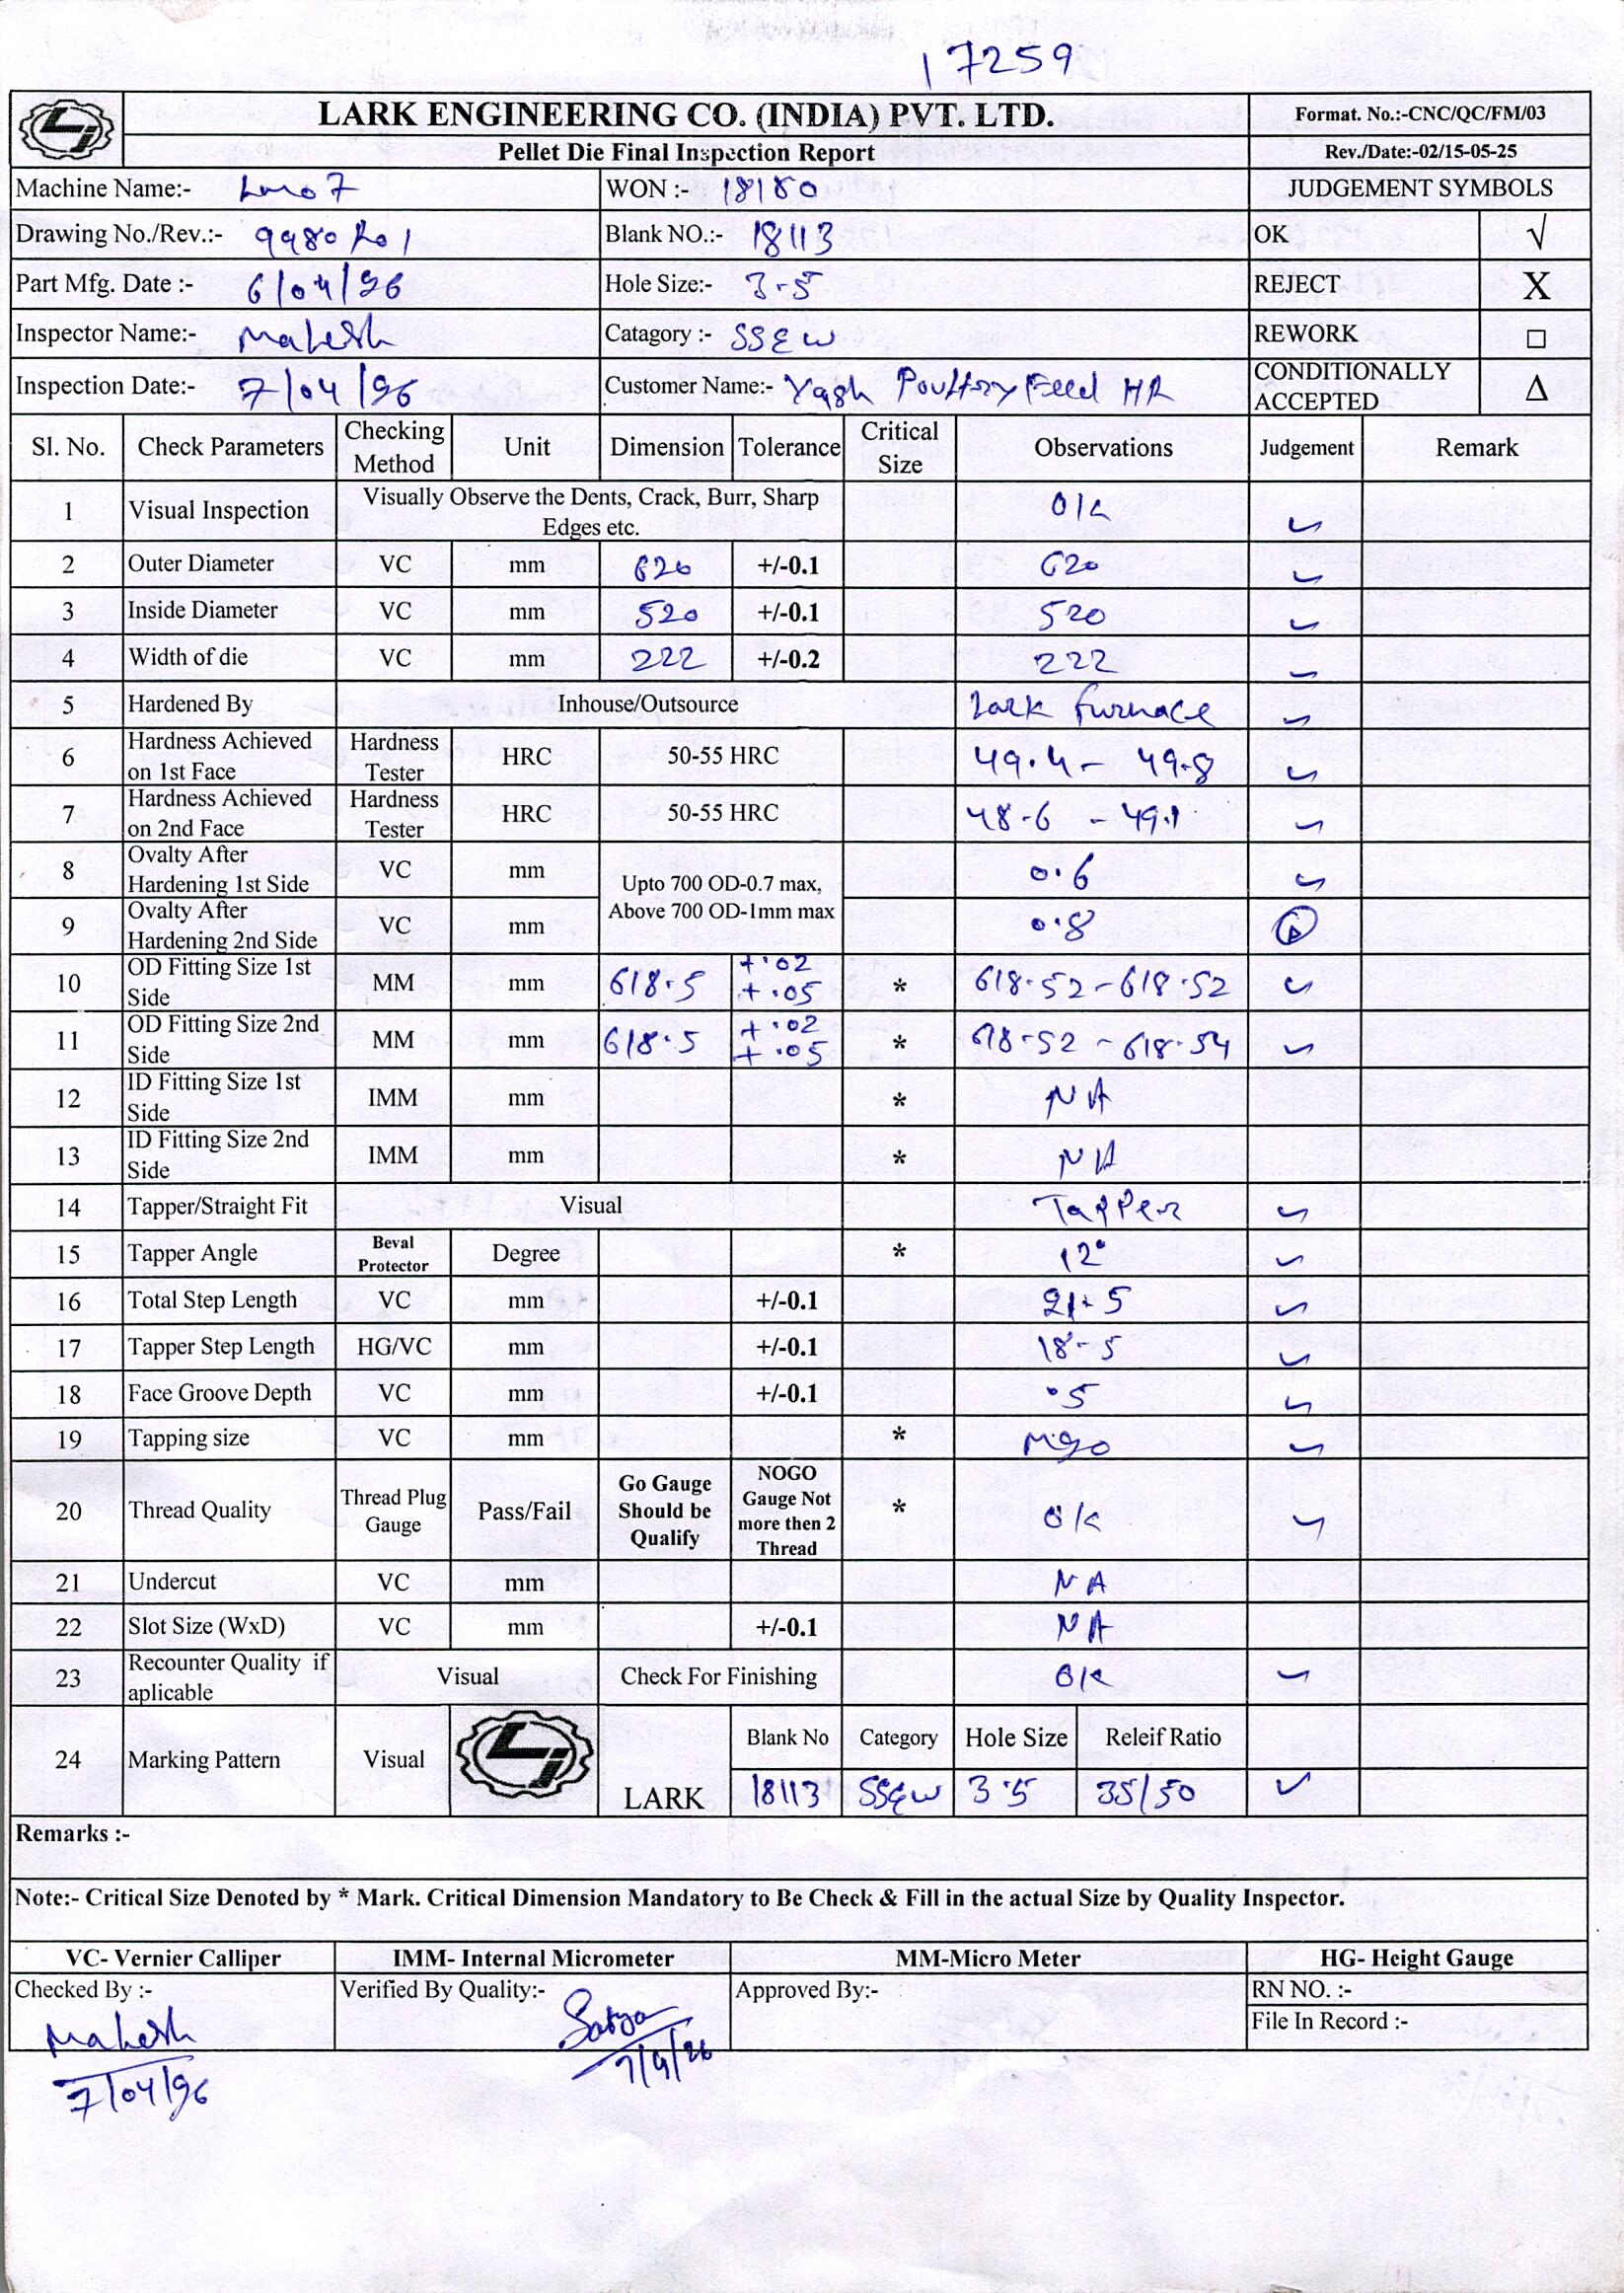 17259
LARK ENGINEERING CO. (INDIA) PVT. LTD.
Format. No.:-CNC/QC/FM/03
Pellet Die Final Inspection Report
Rev./Date:-02/15-05-25
Machine Name:-
WON :- 18180
JUDGEMENT SYMBOLS
Drawing No./Rev.:- 9980 R01
Blank NO.:- 18113
OK √
Part Mfg. Date :- 6/04/26
Hole Size:- 3-5
REJECT X
Inspector Name:- Mahesh
Catagory :- SSEW
REWORK □
Inspection Date:- 7/04/26
Customer Name:- Yash Poultry Feed HR
CONDITIONALLY ACCEPTED Δ
Sl. No. Check Parameters Checking Method Unit Dimension Tolerance Critical Size Observations Judgement Remark
1 Visual Inspection Visually Observe the Dents, Crack, Burr, Sharp Edges etc. O/K ✓
2 Outer Diameter VC mm 620 +/-0.1 620 ✓
3 Inside Diameter VC mm 520 +/-0.1 520 ✓
4 Width of die VC mm 222 +/-0.2 222 ✓
5 Hardened By Inhouse/Outsource Lark furnace ✓
6 Hardness Achieved on 1st Face Hardness Tester HRC 50-55 HRC 49.4 - 49.8 ✓
7 Hardness Achieved on 2nd Face Hardness Tester HRC 50-55 HRC 48-6 - 49.1 ✓
8 Ovalty After Hardening 1st Side VC mm Upto 700 OD-0.7 max, Above 700 OD-1mm max 0.6 ✓
9 Ovalty After Hardening 2nd Side VC mm 0.8
10 OD Fitting Size 1st Side MM mm 618.5 +.02 +.05 * 618.52-618.52 ✓
11 OD Fitting Size 2nd Side MM mm 618.5 +.02 +.05 * 618-52 - 618.54 ✓
12 ID Fitting Size 1st Side IMM mm * NA
13 ID Fitting Size 2nd Side IMM mm * NA
14 Tapper/Straight Fit Visual Tapper ✓
15 Tapper Angle Beval Protector Degree * 12° ✓
16 Total Step Length VC mm +/-0.1 21.5 ✓
17 Tapper Step Length HG/VC mm +/-0.1 18-5 ✓
18 Face Groove Depth VC mm +/-0.1 .5 ✓
19 Tapping size VC mm * M20 ✓
20 Thread Quality Thread Plug Gauge Pass/Fail Go Gauge Should be Qualify NOGO Gauge Not more then 2 Thread * O/K ✓
21 Undercut VC mm NA
22 Slot Size (WxD) VC mm +/-0.1 NA
23 Recounter Quality if aplicable Visual Check For Finishing O/K ✓
24 Marking Pattern Visual LARK Blank No Category Hole Size Releif Ratio
18113 SSEW 3.5 35/50 ✓
Remarks :-
Note:- Critical Size Denoted by * Mark. Critical Dimension Mandatory to Be Check & Fill in the actual Size by Quality Inspector.
VC- Vernier Calliper IMM- Internal Micrometer MM-Micro Meter HG- Height Gauge
Checked By :- Verified By Quality:- Approved By:- RN NO. :-
File In Record :-
Mahesh
7/04/26
Satya
7/4/26